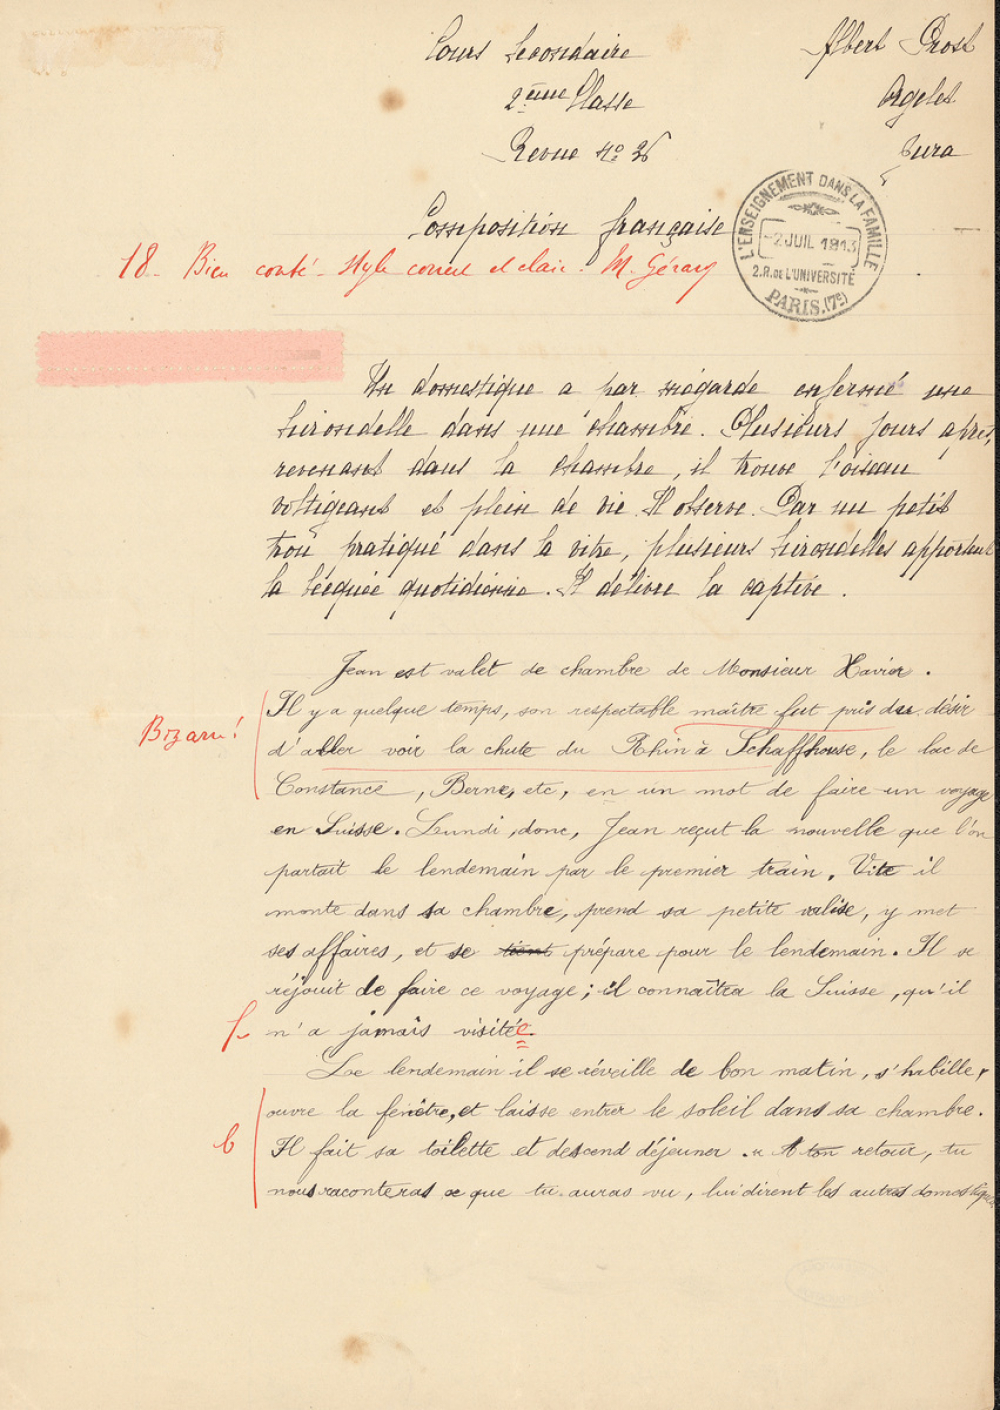 Cours Secondaire
Albert Prost
2ème Classe
Orgelet
Revue No 26
Jura
Composition française
L'ENSEIGNEMENT DANS LA FAMILLE
-2 JUIL 1913
2.R. DE L'UNIVERSITÉ
PARIS.(7e)
18 - Bien conté - Style correct et clair. M. Gérary
Un domestique a par mégarde enfermé une
hirondelle dans une chambre. Plusieurs jours après,
revenant dans la chambre, il trouve l'oiseau
voltigeant et plein de vie. Il observe. Par un petit
trou pratiqué dans la vitre, plusieurs hirondelles apportent
la becquée quotidienne. Il délivre la captive.
Jean est valet de chambre de Monsieur Xavier.
Il y a quelque temps, son respectable maître fut pris du désir
Bizarre!
d'aller voir la chute du Rhin à Schaffhouse, le lac de
Constance, Berne, etc, en un mot de faire un voyage
en Suisse. Lundi, donc, Jean reçut la nouvelle que l'on
partait le lendemain par le premier train. Vite il
monte dans sa chambre, prend sa petite valise, y met
ses affaires, et se tient prépare pour le lendemain. Il se
réjouit de faire ce voyage; il connaîtra la Suisse, qu'il
n'a jamais visitée.
Le lendemain il se réveille de bon matin, s'habille,
ouvre la fenêtre, et laisse entrer le soleil dans sa chambre.
b
Il fait sa toilette et descend déjeuner. « A ton retour, tu
nous raconteras ce que tu auras vu, lui dirent les autres domestiques